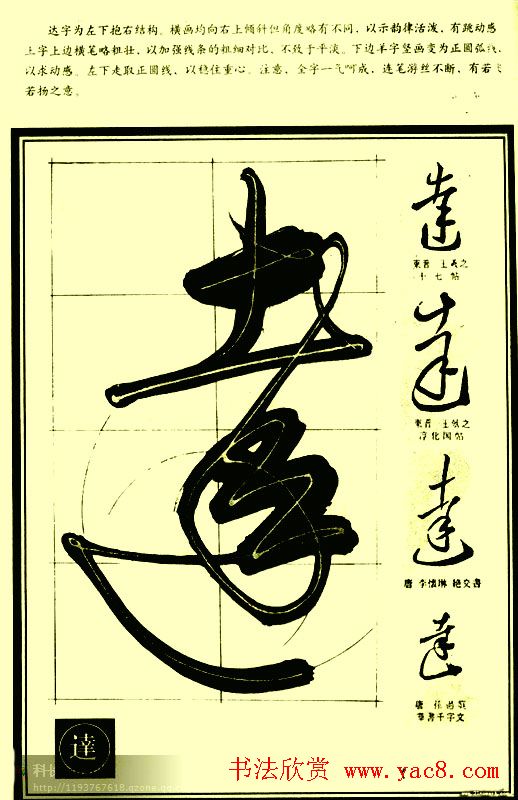 达字为左下抱右结构。横画均向右上倾斜但角度略有不同，以示韵律活泼，有跳动感
土字上边横笔略粗壮，以加强线条的粗细对比，不致于平淡。下边羊字竖画变为正圆弧线，
以求动感。左下走取正圆线，以稳住重心。注意，全字一气呵成，连笔游丝不断，有若飞
若扬之意。
達
達
東晋 王羲之
十七帖
達
東晋 王羲之
淳化阁帖
達
唐 李懷琳 绝交書
達
唐
草書千字文
達
http://1193767618.qzone.qq.co
书法欣赏 www.yac8.com